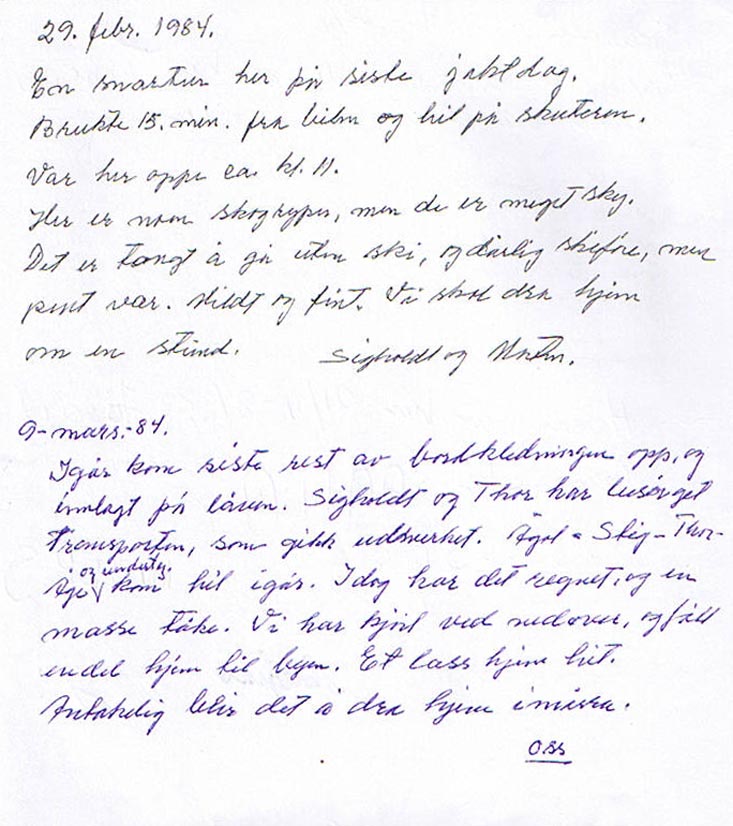 29. febr. 1984.
En snartur her på siste jaktdag.
Brukte 15. min. fra bilen og hit på skuteren.
Var her oppe ca. kl. 11.
Her er noen skogryper, men de er meget sky.
Det er tongt å gå uten ski, og dårlig skiføre, men
pent vær. Mildt og fint. Vi skal dra hjem
om en stund. Sigholdt og
9-mars.-84.
Igår kom siste rest av bordkledningen opp, og
innlagt på låven. Sigholdt og Thor har besørget
transporten, som gikk udmerket. Stig - Thor-
Åge og underteg. kom hit igår. Idag har det regnet, og en
masse tåke. Vi har kjørt ved nedover, og fått
endel hjem til byen. Et lass hjem hit.
Antakelig blir det å dra hjem imårra.
oss